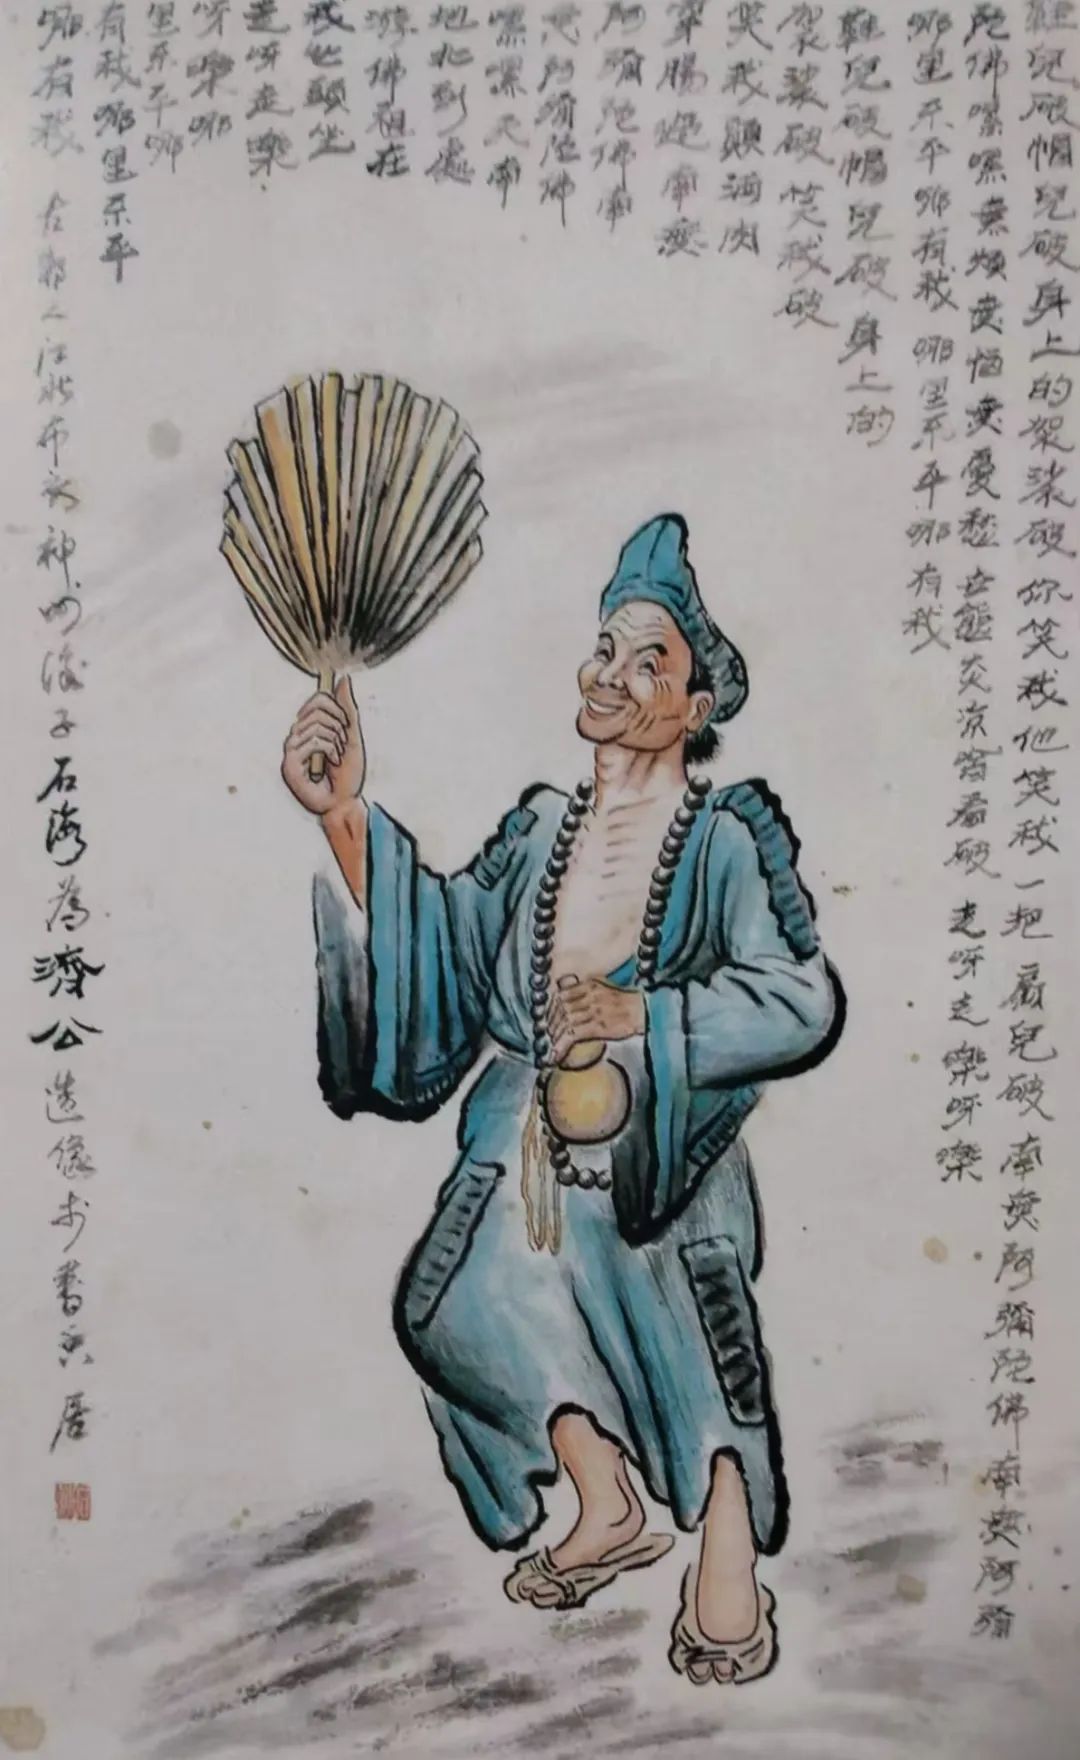 鞋兒破帽兒破身上的袈裟破你笑我他笑我一把扇兒破南無阿彌陀佛南無阿彌
陀佛嘿嘿無煩無惱無憂愁世態炎涼皆看破走呀走樂呀樂
哪里不平哪有我哪里不平哪有我
鞋兒破帽兒破身上的
袈裟破笑我破
笑我顛酒肉
穿腸過南無
阿彌陀佛南
無阿彌陀佛
嘿嘿天南
地北到處
游佛祖在
我心頭坐
走呀走樂
呀樂哪
里不平哪
有我哪里不平
哪有我
神州
子石海為濟公造像於書香居